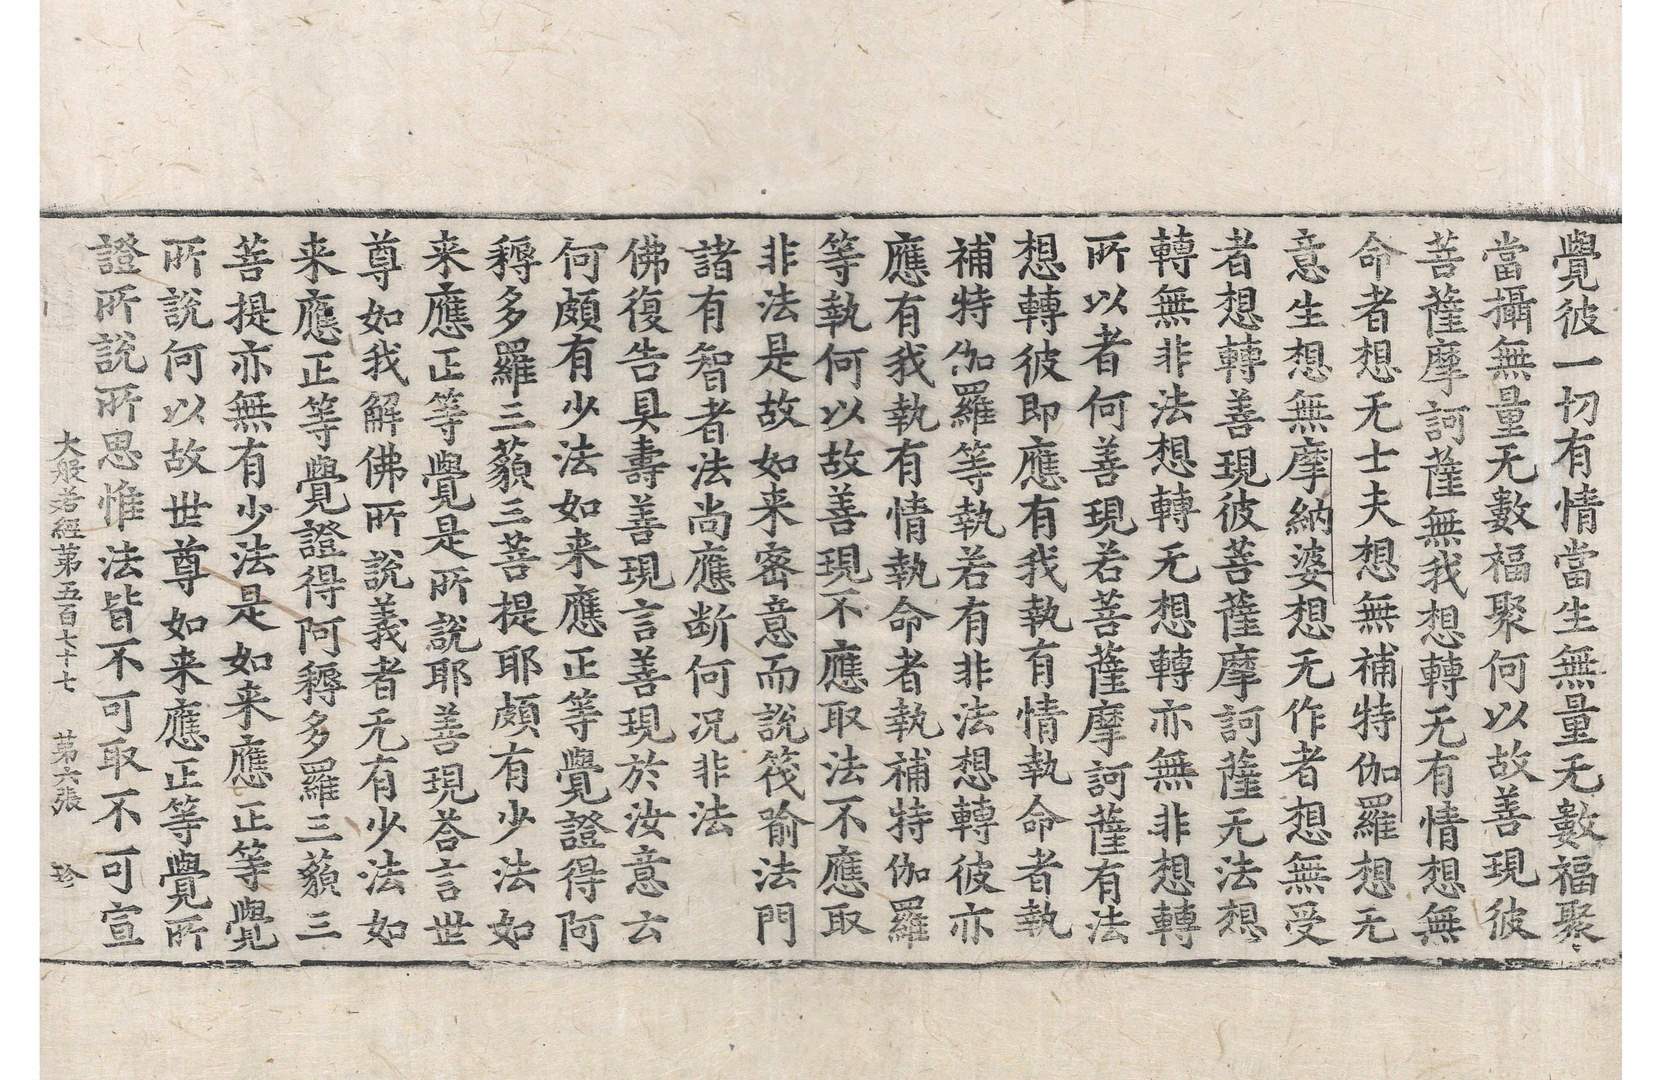 覺彼一切有情當生無量无數福聚
當攝無量无數福聚何以故善現彼
菩薩摩訶薩無我想轉无有情想無
命者想无士夫想無補特伽羅想无
意生想無摩納婆想无作者想無受
者想轉善現彼菩薩摩訶薩无法想
轉無非法想轉无想轉亦無非想轉
所以者何善現若菩薩摩訶薩有法
想轉彼即應有我執有情執命者執
補特伽羅等執若有非法想轉彼亦
應有我執有情執命者執補特伽羅
等執何以故善現不應取法不應取
非法是故如来密意而說筏喻法門
諸有智者法尚應断何況非法
佛復告具壽善現言善現於汝意云
何頗有少法如来應正等覺證得阿
耨多羅三藐三菩提耶頗有少法如
来應正等覺是所說耶善現荅言世
尊如我解佛所說義者无有少法如
来應正等覺證得阿耨多羅三藐三
菩提亦無有少法是如来應正等覺
所說何以故世尊如来應正等覺所
證所說所思惟法皆不可取不可宣
大般若經第五百七十七 第六張 珍